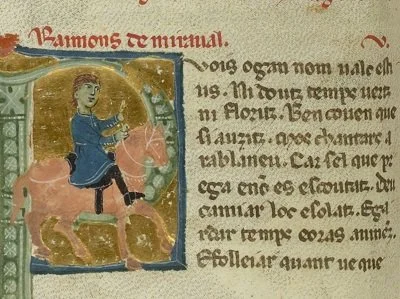 Raimons de miraual. V.
Vois ogan nom ualc esti
us. Ni douz temps uertz
ni floritz. Ben couen que
si auzitz.
rablaneu. Car sel que pr
ega enc es escoutatz. deu
camiar loc e solatz. Ega
rdar temps e oras
E folleiar quant ue que